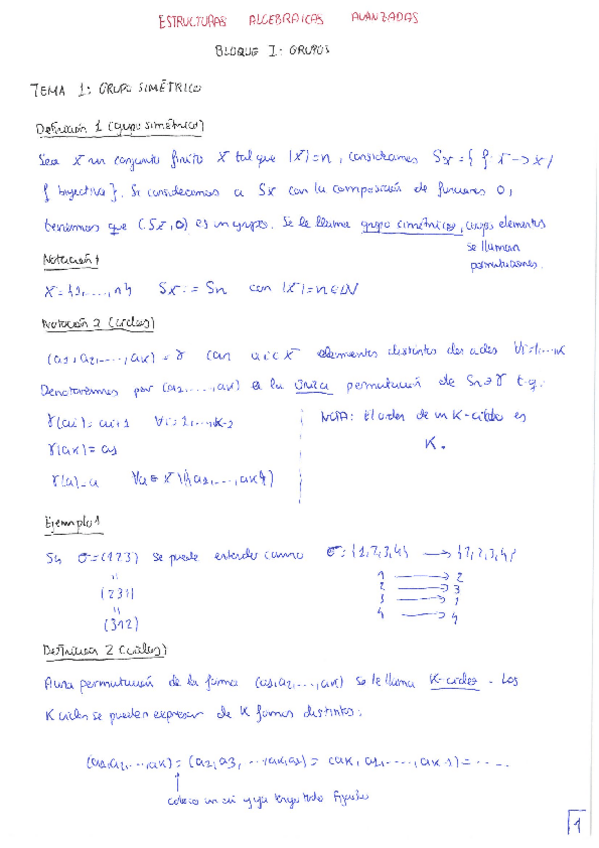 ESTRUCTURAS ALGEBRAICAS AVANZADAS
BLOQUE I: GRUPOS
TEMA 1: GRUPO SIMÉTRICO
Definición 1 (grupo simétrico)
Sea X un conjunto finito X tal que |X|=n, consideramos Sx={ f: X→X /
f biyectiva}. Si consideramos a Sx con la composición de funciones o,
tenemos que (Sx, o) es un grupo. Se le llama grupo simétrico, cuyos elementos
se llaman
permutaciones.
Notación 1
X={1,...,n} Sx := Sn con |X|=n∈ℕ
Notación 2 (ciclos)
(a1,a2,...,ak)=γ con ai∈X elementos distintos dos a dos ∀i=1,...,k
Denotaremos por (a1,...,ak) a la única permutación de Sn∋γ t.q:
γ(ai)=ai+1 ∀i=1,...,k-1
γ(ak)=a1
γ(a)=a ∀a∈X\{a1,...,ak}
NOTA: El orden de un K-ciclo es
K.
Ejemplo 1
S4 σ=(123) se puede entender como σ:{1,2,3,4} → {1,2,3,4}
"
(231)
"
(312)
1 → 2
2 → 3
3 → 1
4 → 4
Definición 2 (ciclos)
A una permutación de la forma (a1,a2,...,ak) se le llama K-ciclo. Los
K ciclos se pueden expresar de K formas distintas:
(a1,a2,...,ak)=(a2,a3,...,ak,a1)=(ak,a1,...,ak-1)=....
↑
coloco un ai y ya tengo todo fijado
1